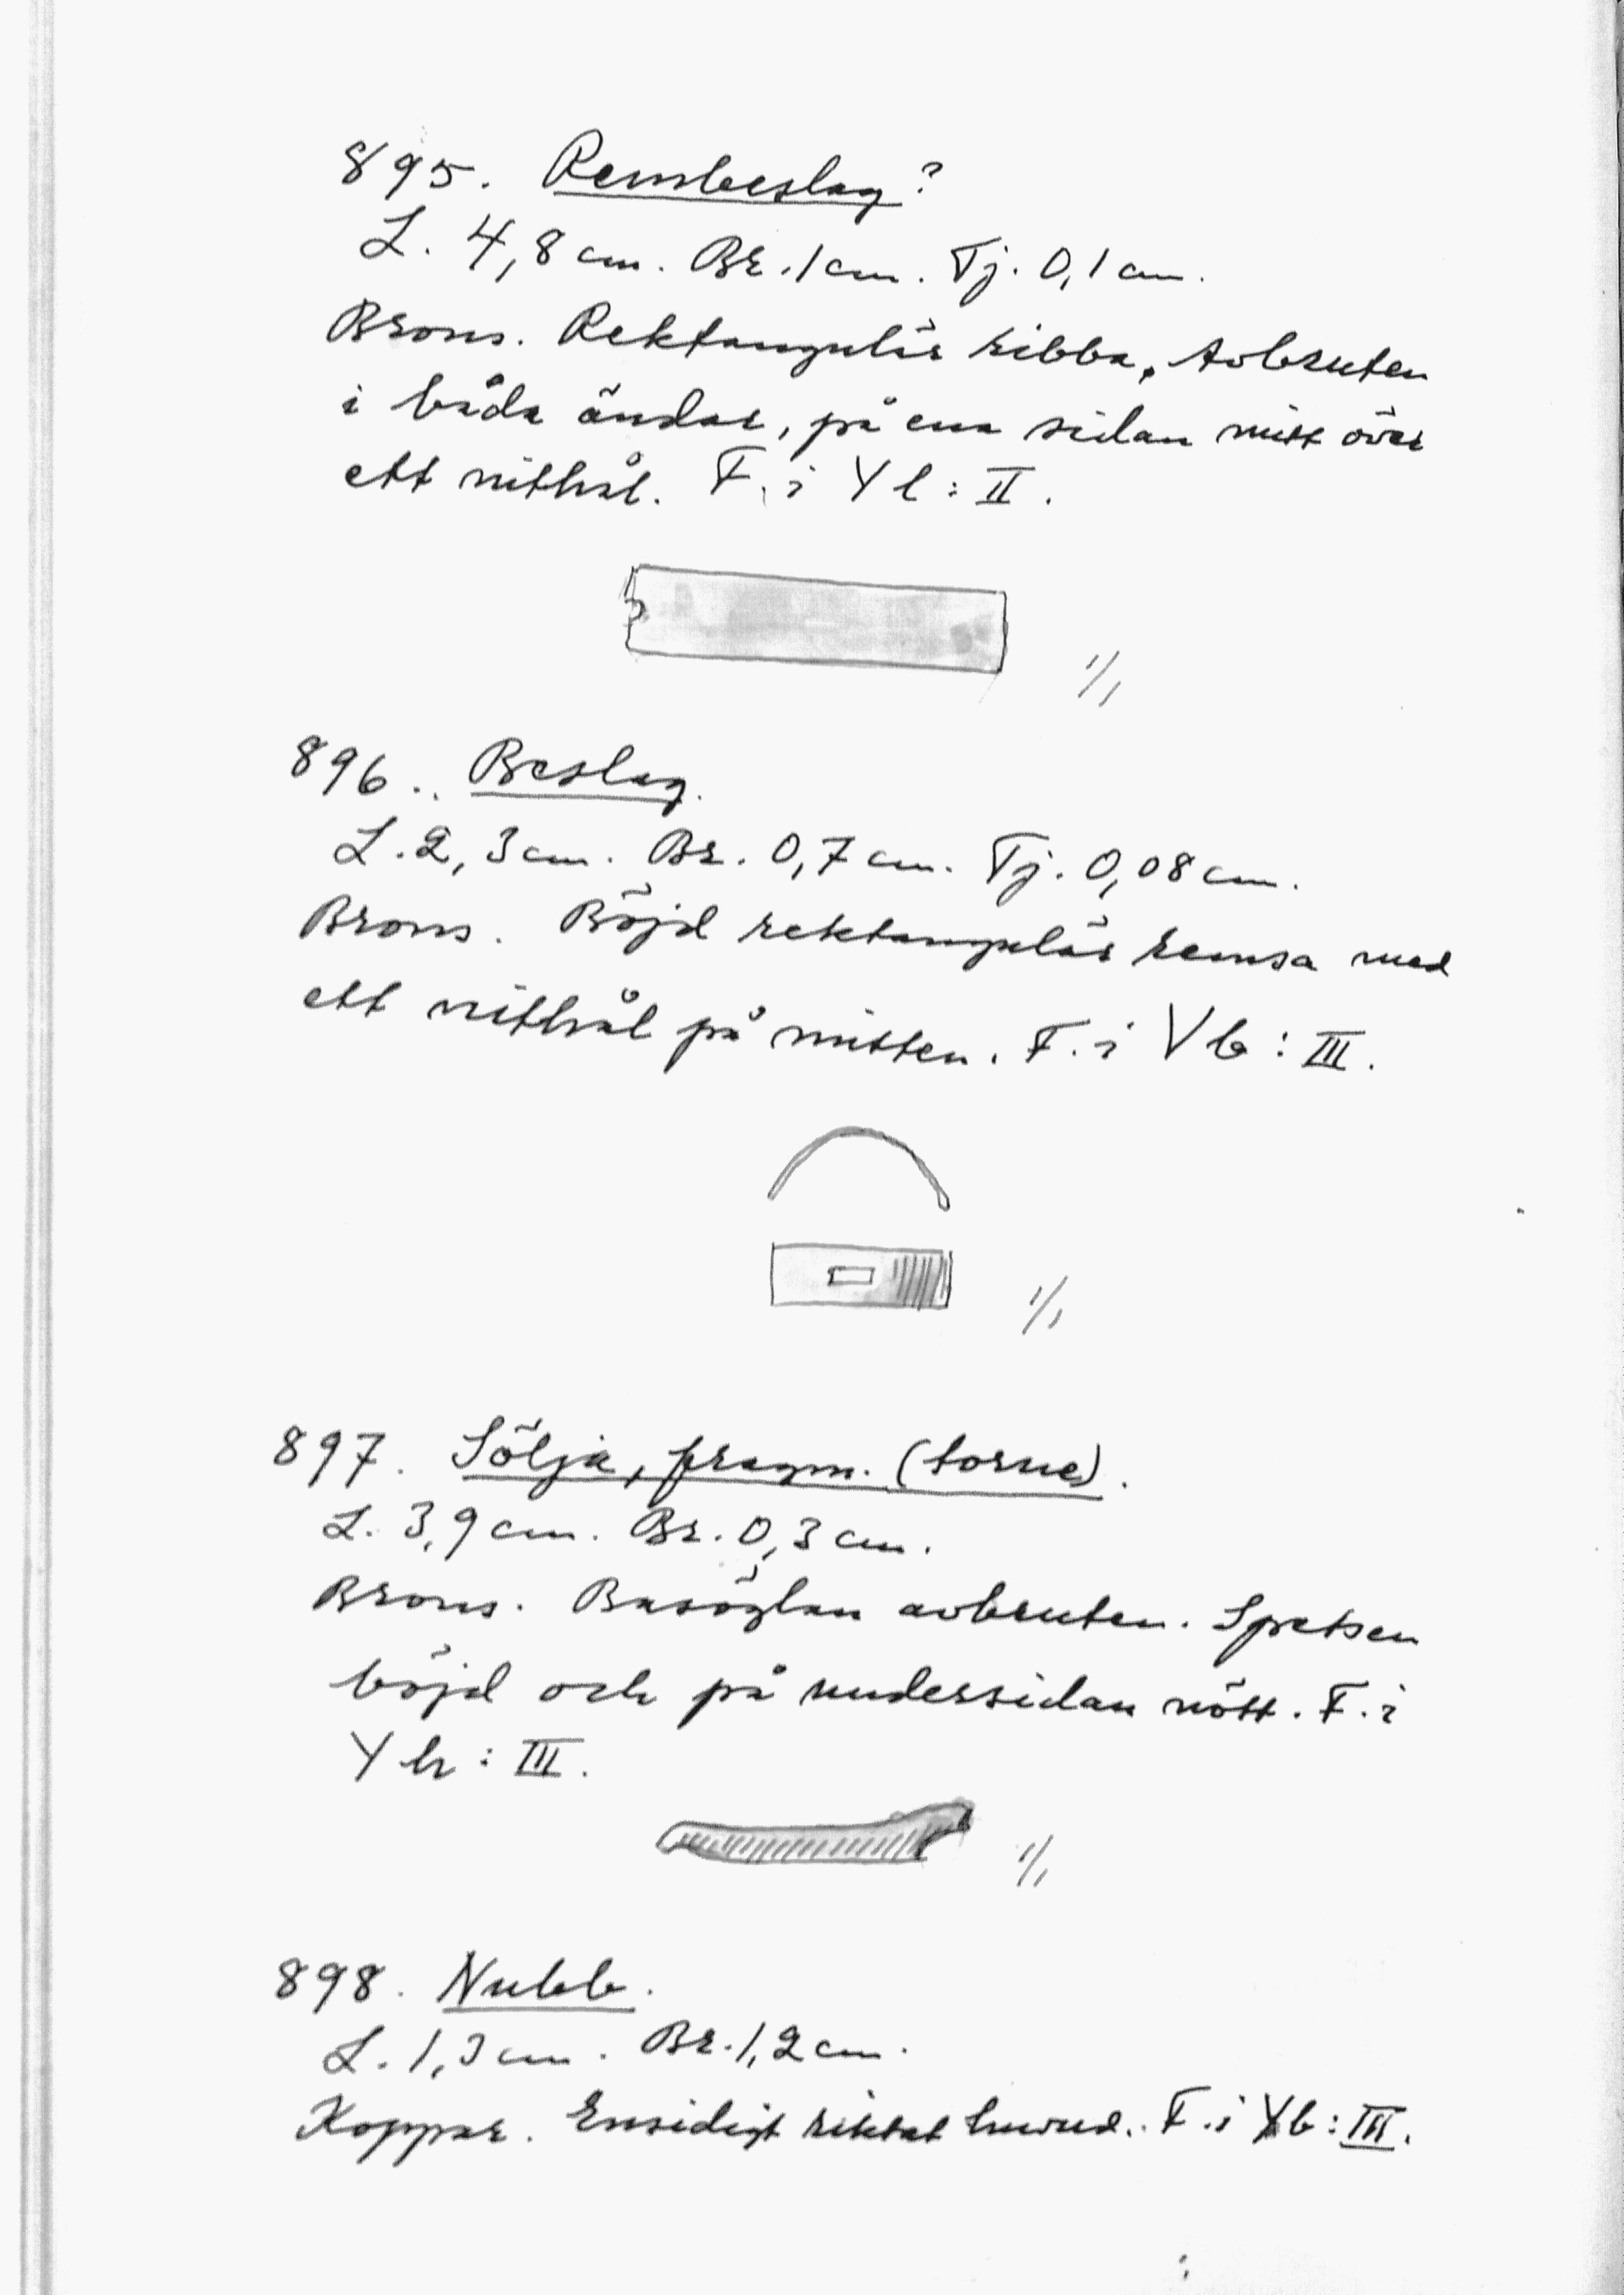 895. Rembeslag?
L. 4,8 cm. Br. 1 cm. Tj. 0,1 cm.
Brons. Rektangulär ribba. Avbruten
i båda ändar, på ena sidan mitt över
ett nithål. F. i Y l : II.
1/1
896. Beslag.
L. 2,3 cm. Br. 0,7 cm. Tj. 0,08 cm.
Brons. Böjd rektangulär remsa med
ett nithål på mitten. F. i V b : III.
1/1
897. Sölja, fragm. (torne).
L. 3,9 cm. Br. 0,3 cm.
Brons. Basöglan avbruten. Spetsen
böjd och på undersidan nött. F. i
Y h : III.
1/1
898. Nubb.
L. 1,3 cm. Br. 1,2 cm.
Koppar. Ensidigt riktat huvud. F. i b : III.